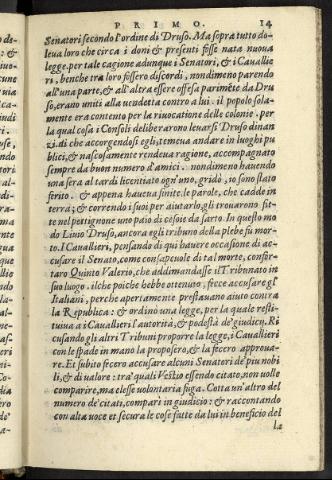 PRIMO. 14
Senatori secondo l'ordine di Druso. Ma sopra tutto do-
leua loro che circa i doni & presenti fosse nata nuoua
legge. per tale cagione adunque i Senatori, & i Cauallie
ri, benche tra loro fossero discordi, nondimeno parendo
all'una parte, & all'altra essere offesa parimẽte da Dru
so, erano uniti alla uendetta contro a lui. il popolo sola-
mente era contento per la riuocatione delle colonie. per
la qual cosa i Consoli deliberarono leuarsi Druso dinan
zi. di che accorgendosi egli, temeua andare in luoghi pu
blici, & nascosamente rendeua ragione, accompagnato
sempre da buon numero d'amici. nondimeno hauendo
una sera al tardi licentiato ogn'uno, gridò, io sono stato
ferito. & appena haueua finite le parole, che cadde in
terra; & correndo i suoi per aiutarlo, gli trouarono fit-
te nel pettignone uno paio di cesoie da sarto. In questo mo
do Liuio Druso, ancora egli tribuno della plebe fu mor-
to. I Cauallieri, pensando di qui hauere occasione di ac-
cusare il Senato, come consapeuole di tal morte, confor-
taro Quinto Valerio, che addimandasse il Tribunato in
suo luogo. ilche poiche hebbe ottenuto, fece accusare gl'
Italiani, perche apertamente prestauano aiuto contra
la Republica: & ordinò una legge, per la quale resti-
tuiua a i Cauallieri l'autorità, & podestà de' giudicij. Ri
cusando gli altri Tribuni proporre la legge, i Cauallieri
con le spade in mano la proposero, & la fecero approua-
re. Et subito fecero accusare alcuni Senatori de' piu nobi
li, & di ualore: tra' quali Vestio essendo citato, non uolle
comparire, ma elesse uolontaria fuga. Cotta un'altro del
numero de' citati, comparì in giudicio: & raccontando
con alta uoce et secura le cose fatte da lui in beneficio del
la